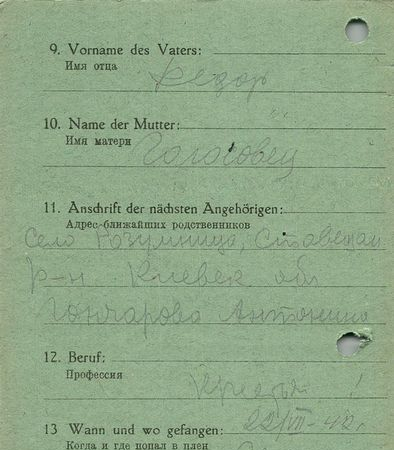 9. Vorname des Vaters:
Имя отца
Федор
10. Name der Mutter:
Имя матери
Голосовец
11. Anschrift der nächsten Angehörigen:
Адрес ближайших родственников
село Розумница, Ставещан
р-н Киевск обл
Гончарова Антонина
12. Beruf:
Профессия
13 Wann und wo gefangen: 22/VII-42г.
Когда и где попал в плен